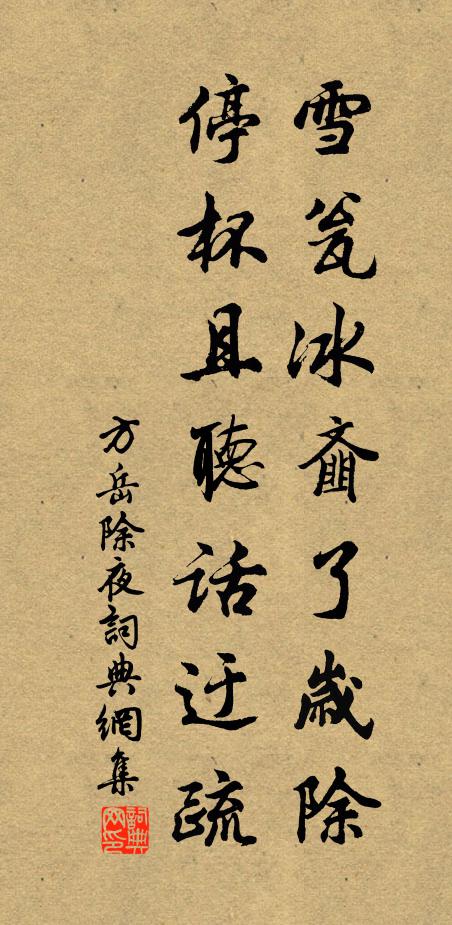 雪瓮冰齑了歲除
停杯且聽話迂疏
方岳除夜詞典網集
詞典网印